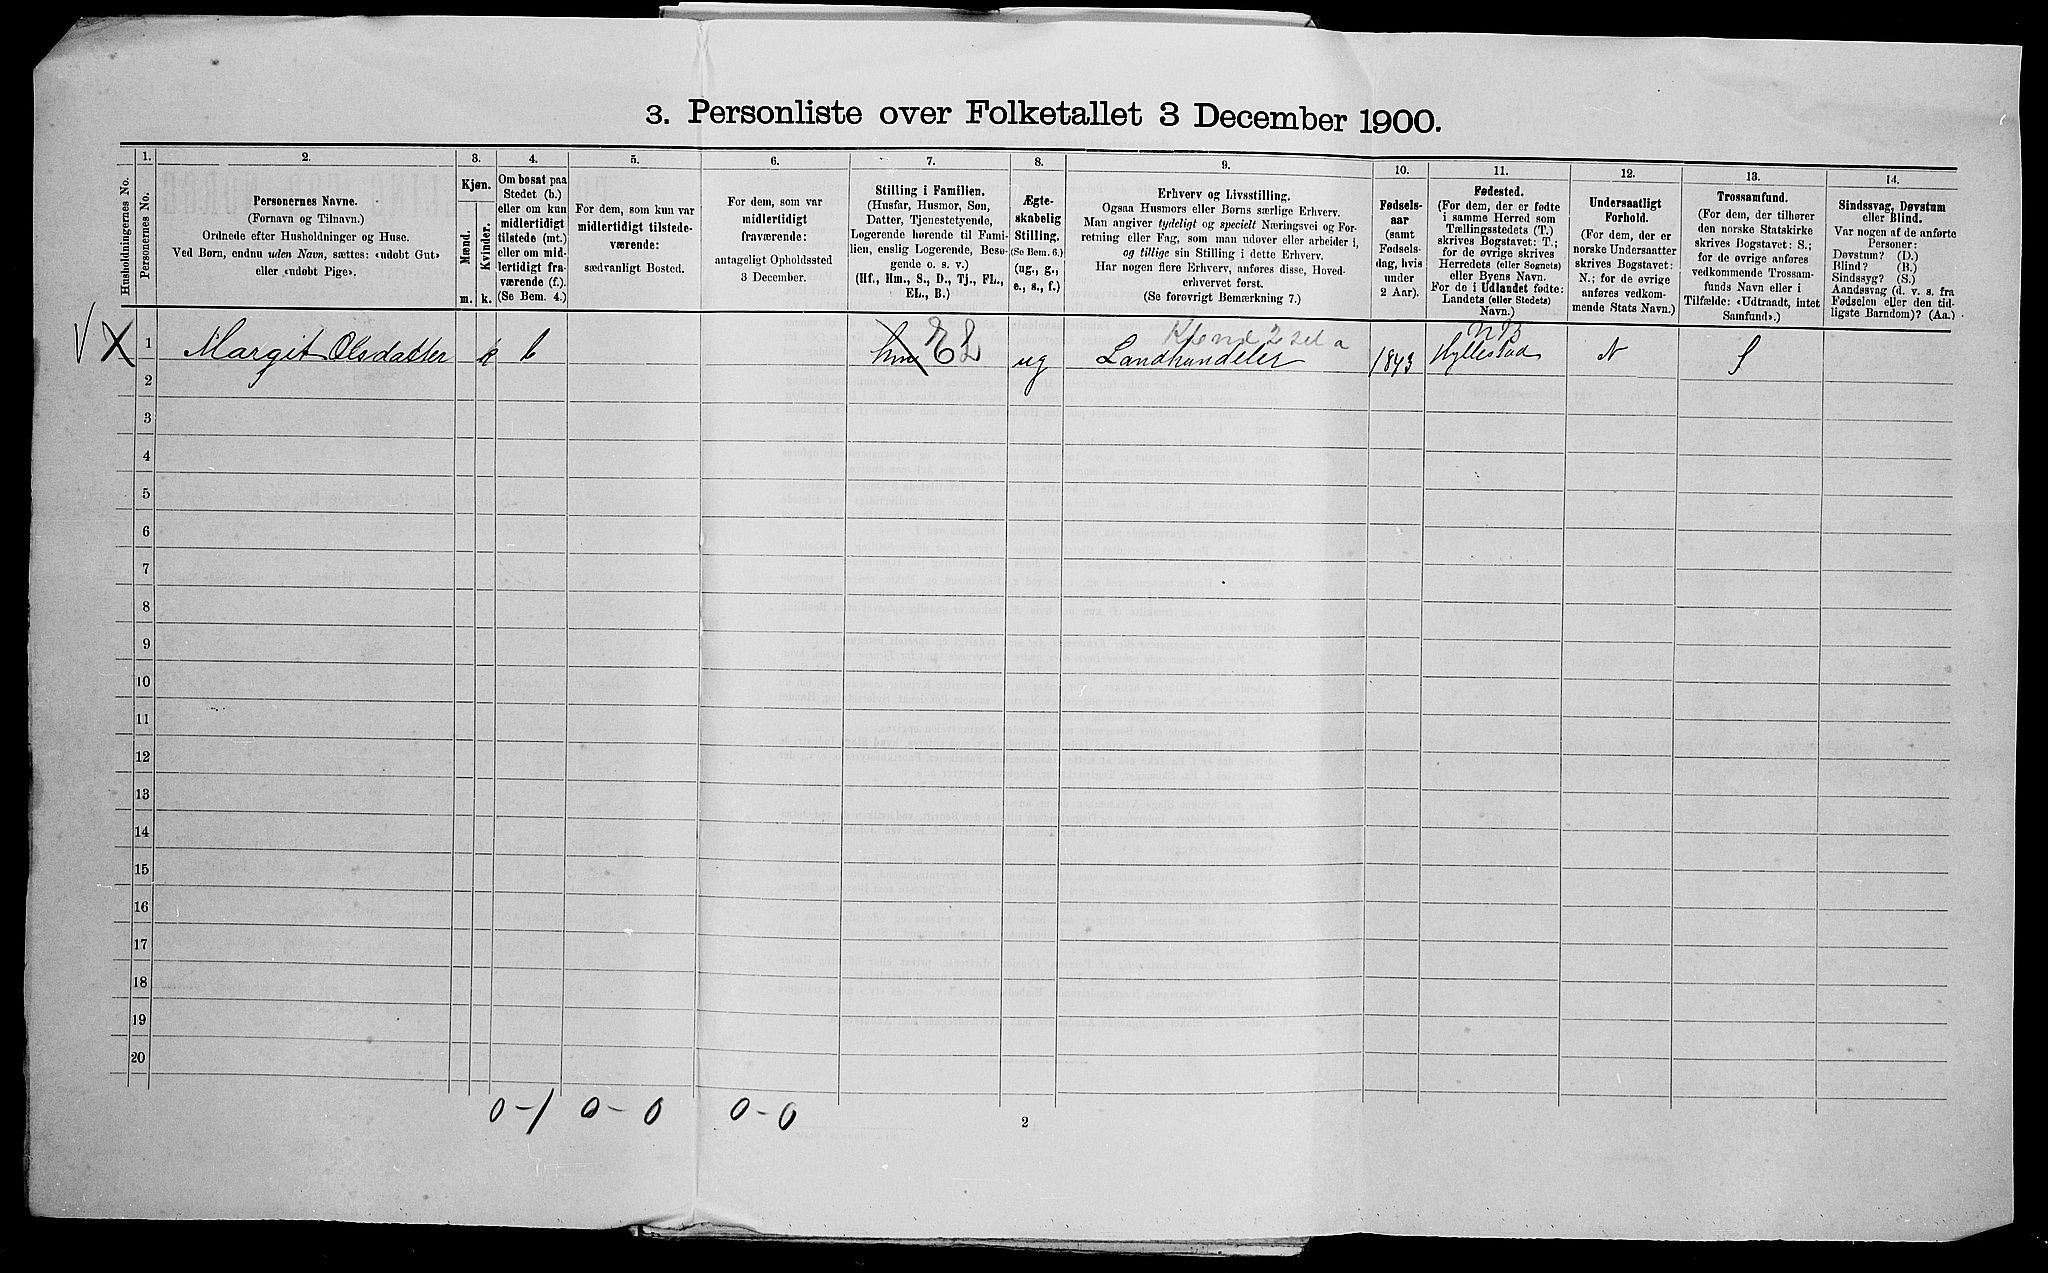 3. Personliste over Folketallet 3 December 1900.
Husholdningernes No.
1.
Personernes No.
2.
Personernes Navne.
(Fornavn og Tilnavn.)
Ordnede efter Husholdninger og Huse.
Ved Børn, endnu uden Navn, sættes: «udøbt Gut»
eller «udøbt Pige».
3.
Kjøn.
Mænd.
Kvinder.
m.
k.
4.
Om bosat paa
Stedet (b.)
eller om kun
midlertidigt
tilstede (mt.)
eller om mid-
lertidigt fra-
værende (f.).
(Se Bem. 4.)
5.
For dem, som kun var
midlertidigt tilstede-
værende:
sædvanligt Bosted.
6.
For dem, som var
midlertidigt
fraværende:
antageligt Opholdssted
3 December.
7.
Stilling i Familien.
(Husfar, Husmor, Søn,
Datter, Tjenestetyende,
Logerende hørende til Fami-
lien, enslig Logerende, Besø-
gende o. s. v.)
(Hf., Hm., S., D., Tj., FL.,
EL., B.)
8.
Ægte-
skabelig
Stilling.
(Se Bem. 6.)
(ug., g.,
e., s., f.)
9.
Erhverv og Livsstilling.
Ogsaa Husmors eller Børns særlige Erhverv.
Man angiver tydeligt og specielt Næringsvei og For-
retning eller Fag, som man udøver eller arbeider i,
og tillige sin Stilling i dette Erhverv.
Har nogen flere Erhverv, anføres disse, Hoved-
erhvervet først.
(Se forøvrigt Bemærkning 7.)
10.
Fødsels-
aar
(samt
Fødsels-
dag, hvis
under
2 Aar).
11.
Fødested.
(For dem, der er fødte
i samme Herred som
Tællingsstedets (T.)
skrives Bogstavet: T.;
for de øvrige skrives
Herredets (eller Sognets)
eller Byens Navn.
For de i Udlandet fødte:
Landets (eller Stedets)
Navn.)
12.
Undersaatligt
Forhold.
(For dem, der er
norske Undersaatter
skrives Bogstavet:
N.; for de øvrige
anføres vedkom-
mende Stats Navn.)
13.
Trossamfund.
(For dem, der tilhører
den norske Statskirke
skrives Bogstavet: S.;
for de øvrige anføres
vedkommende Trossam-
funds Navn eller i
Tilfælde: «Udtraadt, intet
Samfund».)
14.
Sindssvag, Døvstum
eller Blind.
Var nogen af de anførte
Personer:
Døvstum? (D.)
Blind? (B.)
Sindssyg? (S.)
Aandssvag (d. v. s. fra
Fødselen eller den tid-
ligste Barndom)? (Aa.)
V X 1 Margit Olsdatter k b hm EL ug Landhandeler 1843 Hyllestad N S
2
3
4
5
6
7
8
9
10
11
12
13
14
15
16
17
18
19
20
0-1 0-0 0-0
2